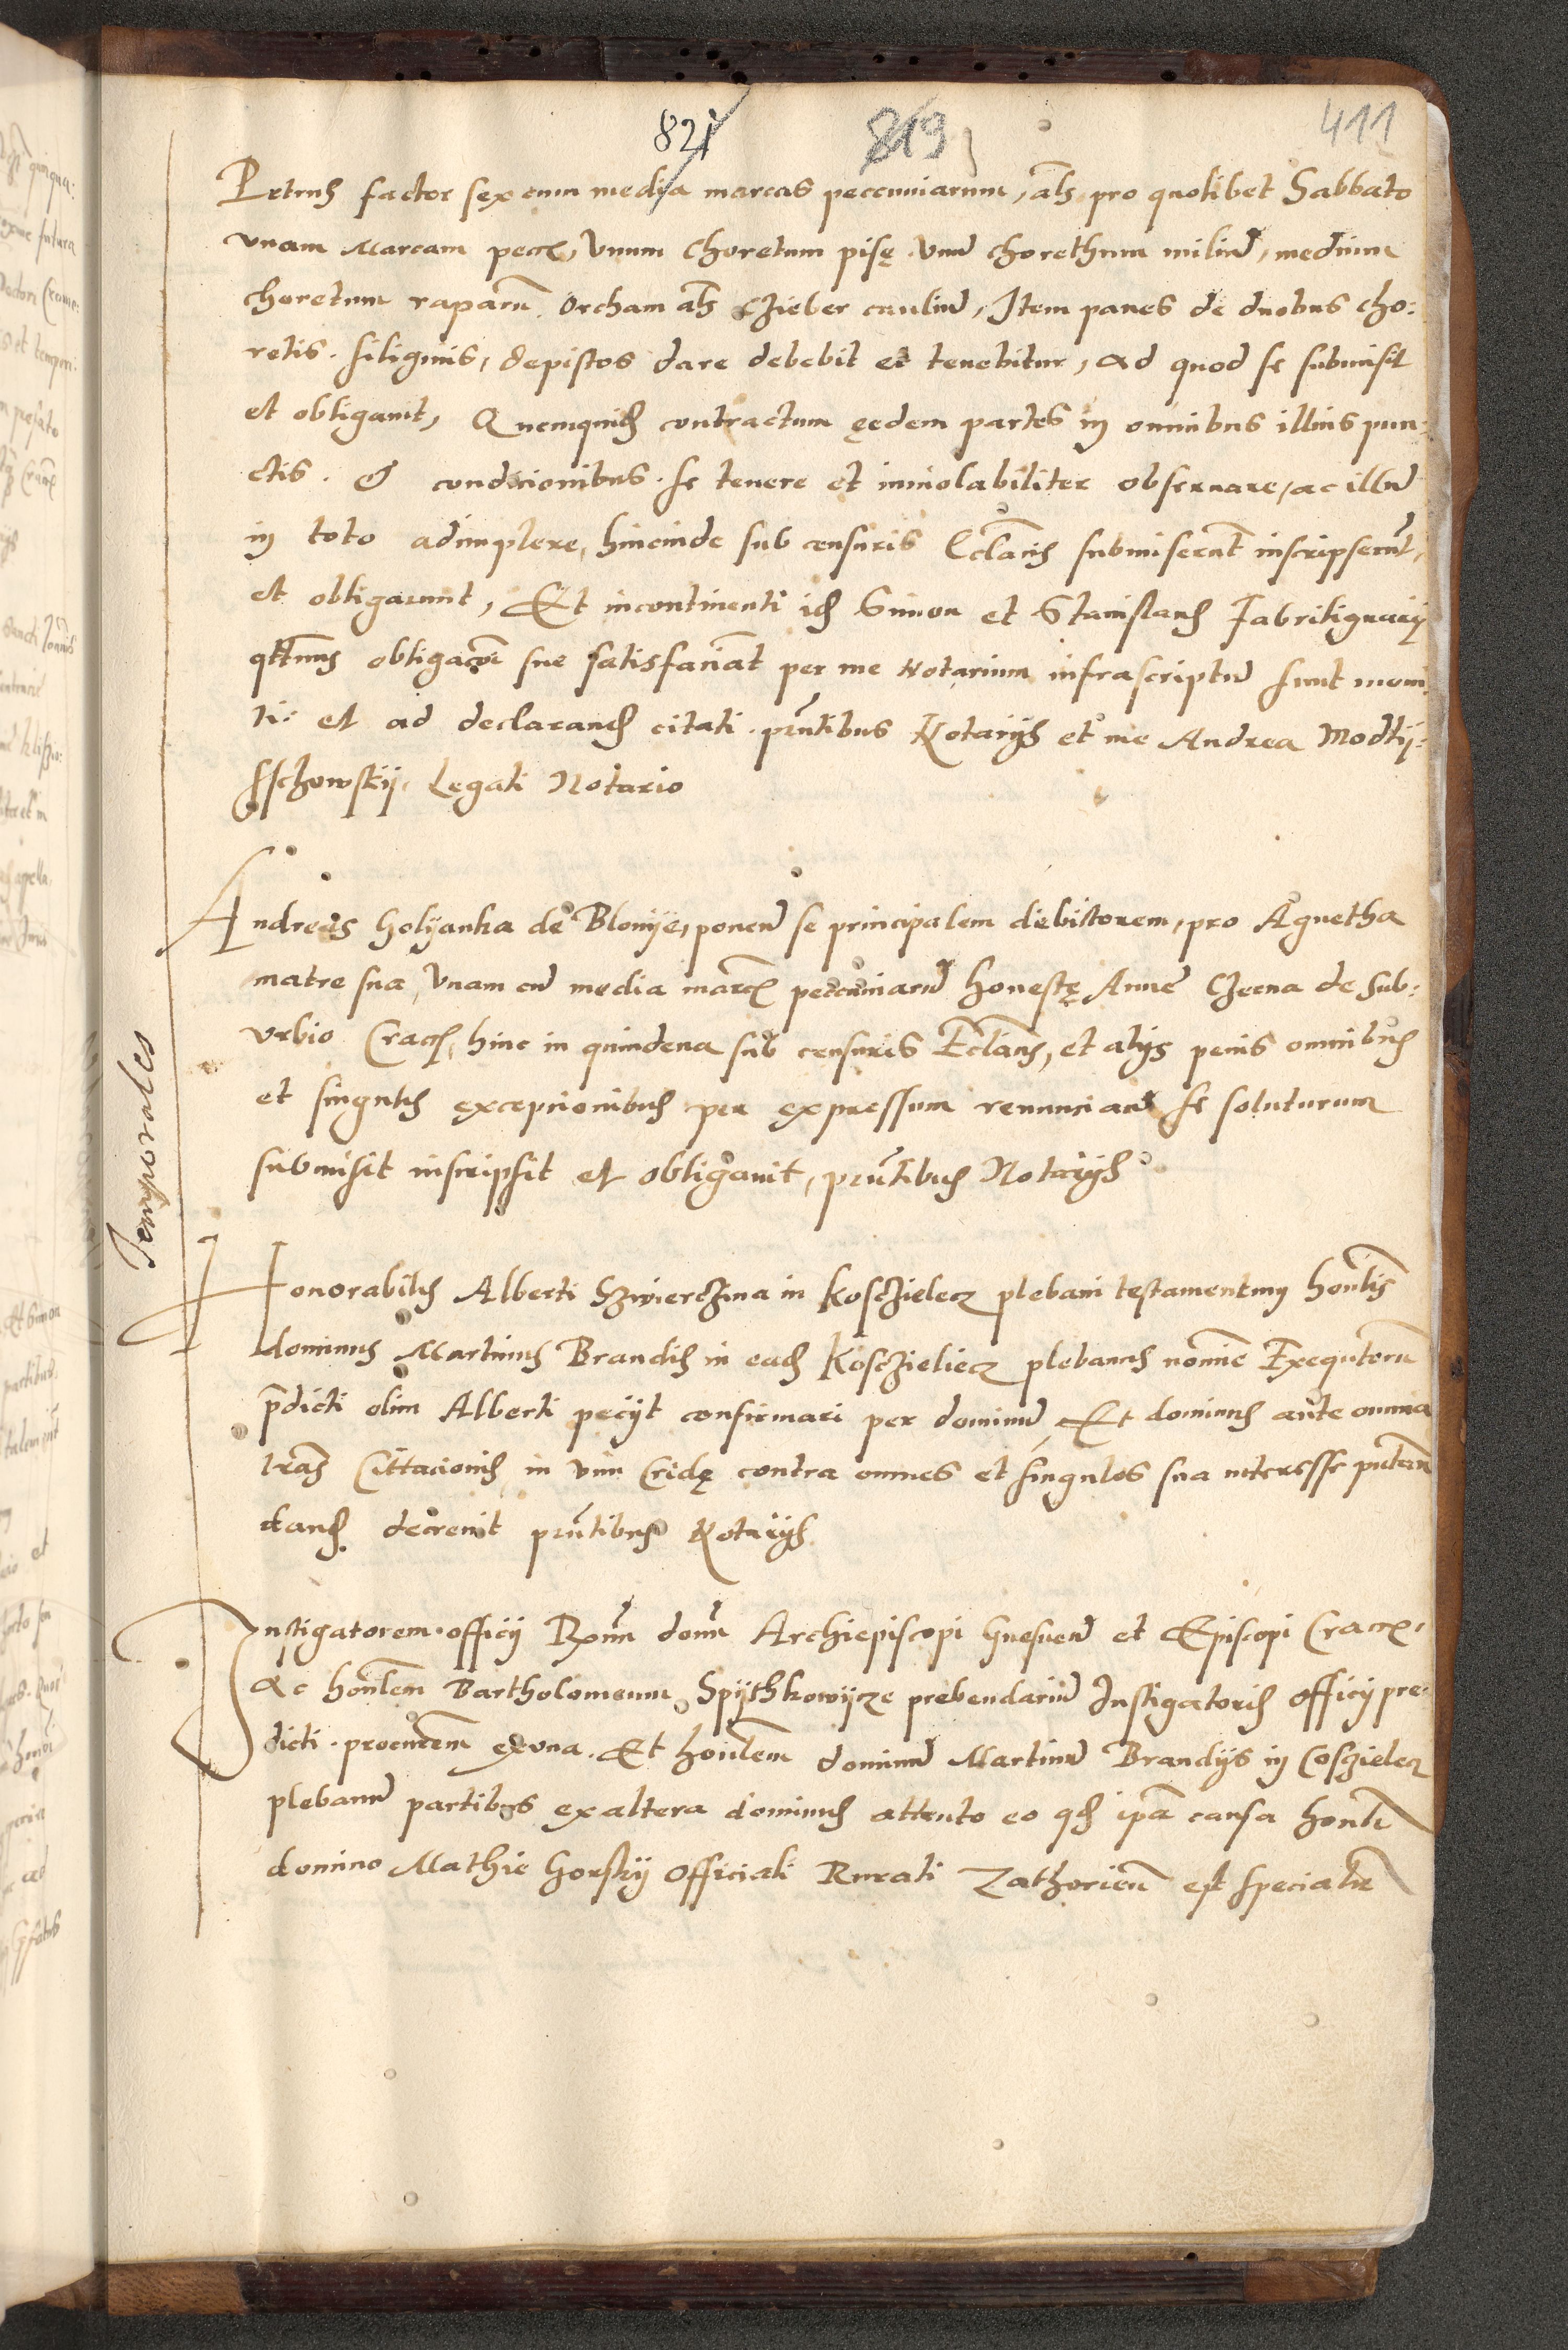 821 819 411
Petrus factor sex cum media marcas peccuniarum, als pro quolibet Sabbato
vnam Marcam pecc, Vnum Choretum pisę vnu chorethum miliu, medium
choretum raparu Orcham als Czieber cauliu, Item panes de duobus cho:
retis siliginis, depistos dare debebit et tenebitur, ad quod se submisit
et obligauit, Quemquid contractum ęedem partes in omnibus illius pun:
ctis & condicionibus se tenere et inuiolabiliter obseruare, ac illu
in toto adimplere, hincinde sub censuris Ecclancis submiserunt inscripserunt,
et obligarunt, Et incontinenti id Simon et Stanislaus Fabrilignarij
qtenus obligacoi sue satisfaciat per me Notarium infrascriptu sunt moni
ti: et ad declarand citati pntibus Notarijs et me Andrea Modlij:
sschowskij, Legati Notario
Andreas Holyanka de Blonije, ponen se principalem debittorem, pro Agnetha
matre sua, Vnam cu media marc peccuniaru honestę Anne Czecna de sub:
vrbio Crac, hinc in quindena sub censuris Ecclancis, et alijs penis omnibus
et singulis exceptionibus per expressum renuncian se soluturum
submisit inscripsit et obligauit, pntibus Notarijs
Temporales
Honorabilis Alberti Szwierczina in Kosczielecz plebani testamentum honlis
dominus Martinus Brandis in ead Kosczieliecz plebanus nomine Exequtoru
pdicti olim Alberti pecijt confirmari per dominu Et dominus ante omnia
lras Cittacionis in vim Cridę contra omnes et singulos sua interesse putan
dand decreuit pntibus Notarijs
Instigatorem officij Rxmi domi Archiepiscopi Gnesnen et Episcopi Cracc
Ac honlem Bartholomeum Spijthkowijcze prebendariu Instigatoris officij pre:
dicti procurem ex vna Et honlem dominu Martinu Brandijs in Cosczielecz
plebanu partibus ex altera dominus attento eo qd ipa causa honli
domino Mathie Gorskij Officiali Rurali Zathorien est specialr